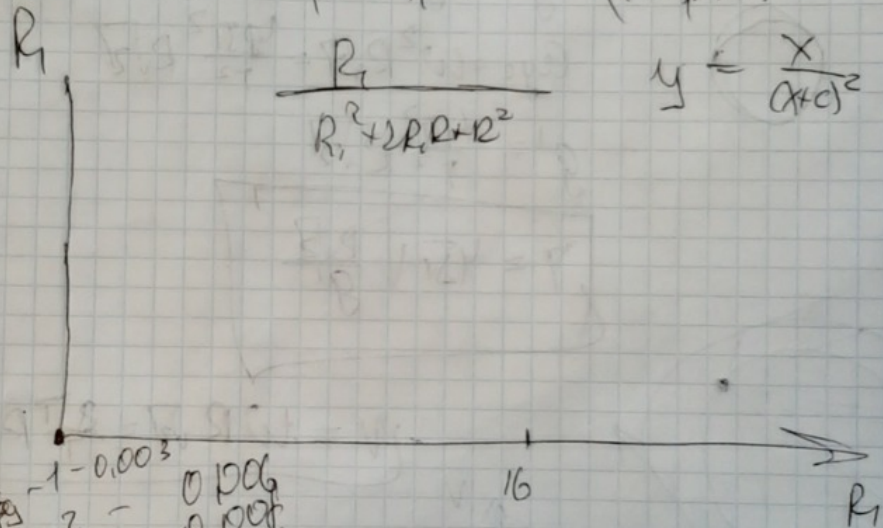 R₁
R₁
R₁²+2R₁R+R²
y = x
(x+c)²
-1-0,003
0,006
16
R₁